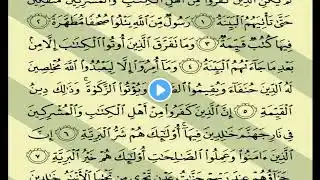 لَمْ يَكُنِ الَّذِينَ كَفَرُوا مِنْ أَهْلِ الْكِتَٰبِ وَالْمُشْرِكِينَ مُنفَكِّينَ
حَتَّىٰ تَأْتِيَهُمُ الْبَيِّنَةُ ١ رَسُولٌ مِّنَ اللَّهِ يَتْلُوا صُحُفًا مُّطَهَّرَةً ٢
فِيهَا كُتُبٌ قَيِّمَةٌ ٣ وَمَا تَفَرَّقَ الَّذِينَ أُوتُوا الْكِتَٰبَ إِلَّا مِنْ
بَعْدِ مَا جَآءَتْهُمُ الْبَيِّنَةُ ٤ وَمَآ أُمِرُوٓا إِلَّا لِيَعْبُدُوا اللَّهَ مُخْلِصِينَ
لَهُ الدِّينَ حُنَفَآءَ وَيُقِيمُوا وَيُؤْتُوا الزَّكَوٰةَ وَذَٰلِكَ دِينُ
الْقَيِّمَةِ ٥ إِنَّ الَّذِينَ كَفَرُوا مِنْ أَهْلِ الْكِتَٰبِ وَالْمُشْرِكِينَ
فِي نَارِ جَهَنَّمَ خَٰلِدِينَ فِيهَآ أُو۟لَٰٓئِكَ هُمْ شَرُّ الْبَرِيَّةِ ٦ إِنَّ
الَّذِينَ ءَامَنُوا وَعَمِلُوا الصَّٰلِحَٰتِ أُو۟لَٰٓئِكَ هُمْ خَيْرُ الْبَرِيَّةِ ٧
جَزَآؤُهُمْ عِندَ رَبِّهِمْ جَنَّٰتُ عَدْنٍ تَجْرِي مِن تَحْتِهَا الْأَنْهَٰرُ خَٰلِدِينَ